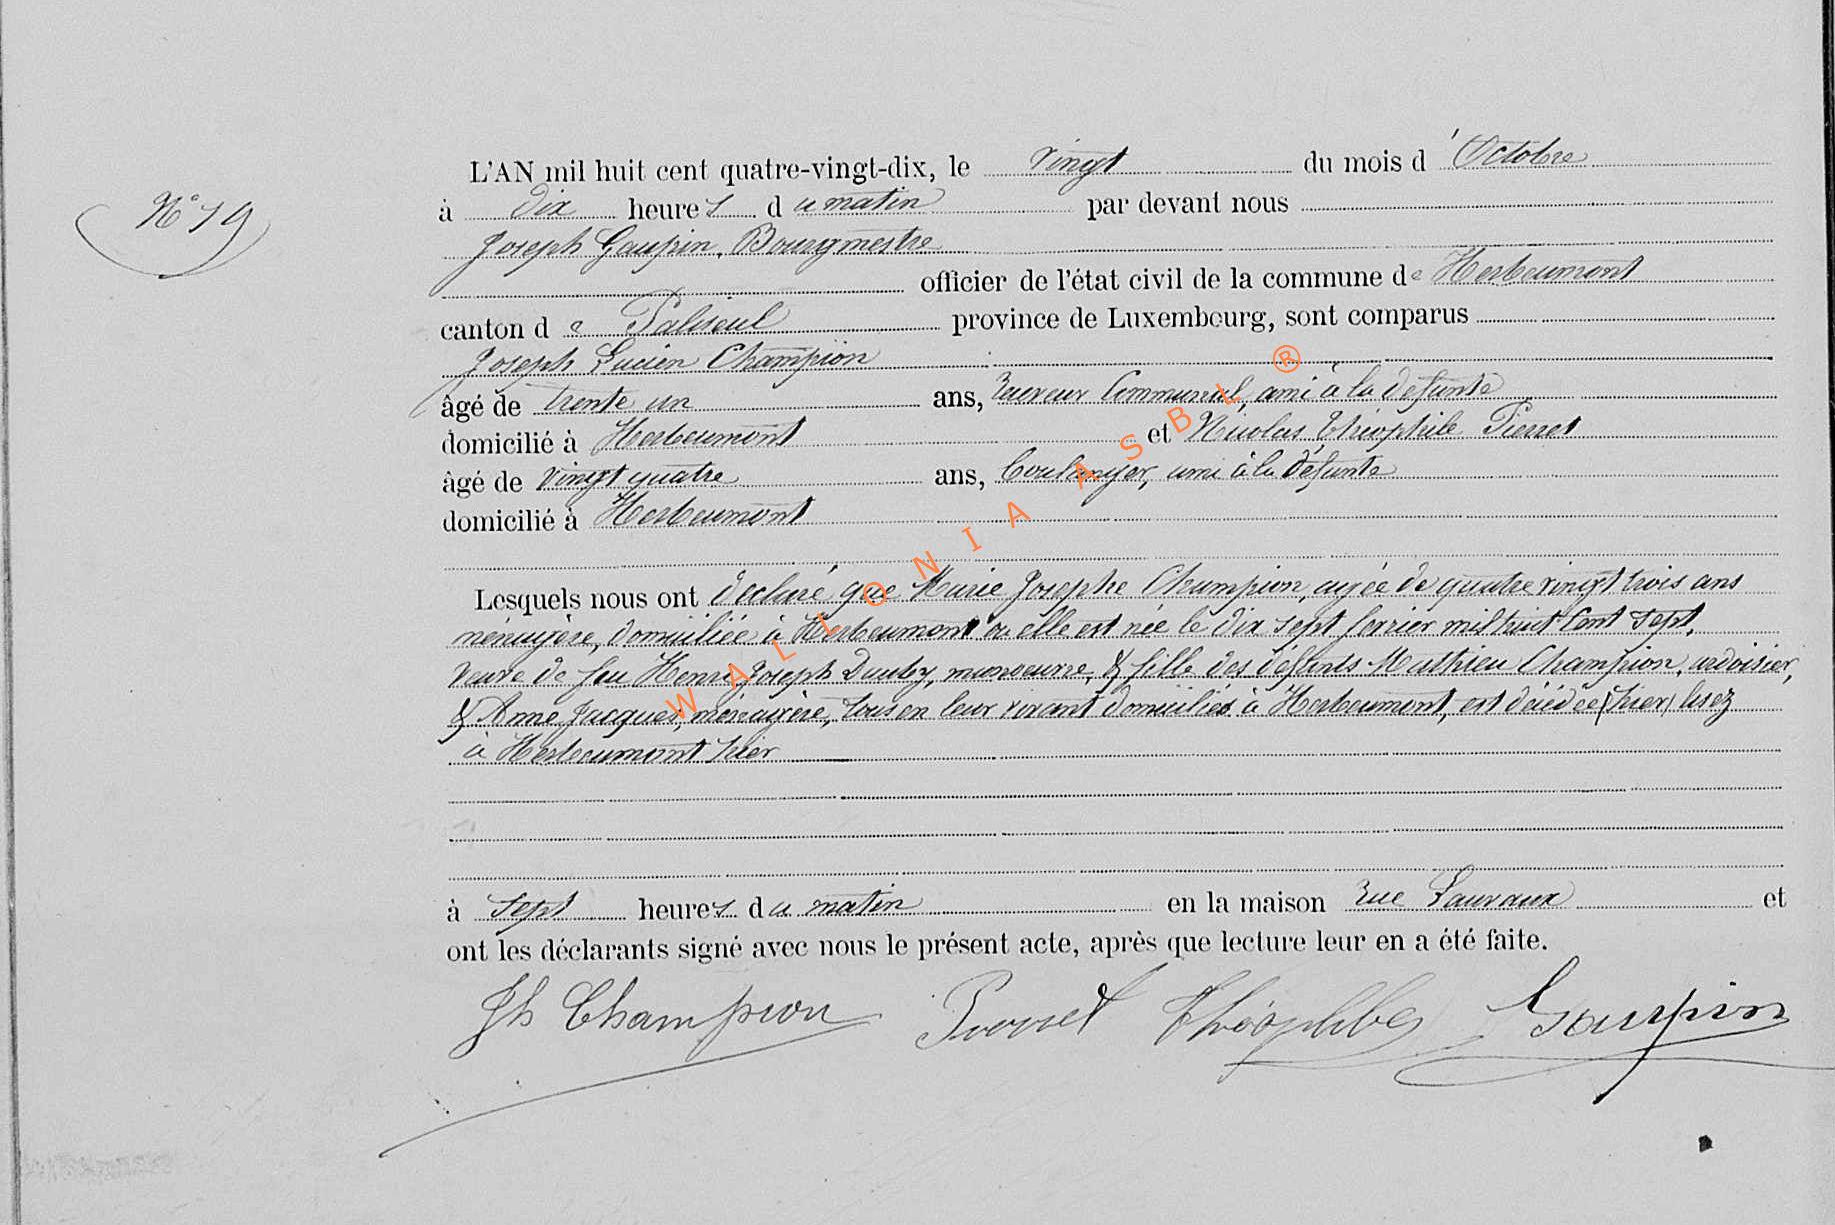 L'AN mil huit cent quatre-vingt-dix, le vingt du mois d'Octobre
N° 19
à dix heures du matin par devant nous
Joseph Gaupin, Bourgmestre
officier de l'état civil de la commune de Herbeumont
canton de Paliseul province de Luxembourg, sont comparus
Joseph Lucien Champion
âgé de trente un ans, receveur Communal, ami à la défunte
domicilié à Herbeumont et Nicolas Théophile Pierret
âgé de vingt quatre ans, boulanger, ami à la défunte
domicilié à Herbeumont
Lesquels nous ont déclaré que Marie Josephe Champion, agée de quatre vingt trois ans
ménagère, domiciliée à Herbeumont ou elle est née le dix sept fevrier mil huit cent sept,
veuve de feu Henri Joseph Dauby, manoeuvre, & fille des défunts Mathieu Champion, ardoisier,
& Anne Jacques, ménagère, tous en leur vivant domiciliés à Herbeumont, est décédée (hier) lisez
à Herbeumont hier
à sept heures du matin en la maison rue Lauvaux et
ont les déclarants signé avec nous le présent acte, après que lecture leur en a été faite.
Jh Champion Pierret Théophile Gaupin
WALLONIA ASBL ®